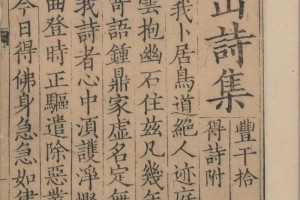 山詩集
豐干拾
得詩附
我卜居鳥道絶人迹庭
雲抱幽石住兹凡幾年
寄語鍾鼎家虛名定無
我詩者心中須護淨慳
曲登時正驅遣除惡業
今日得佛身急急如律